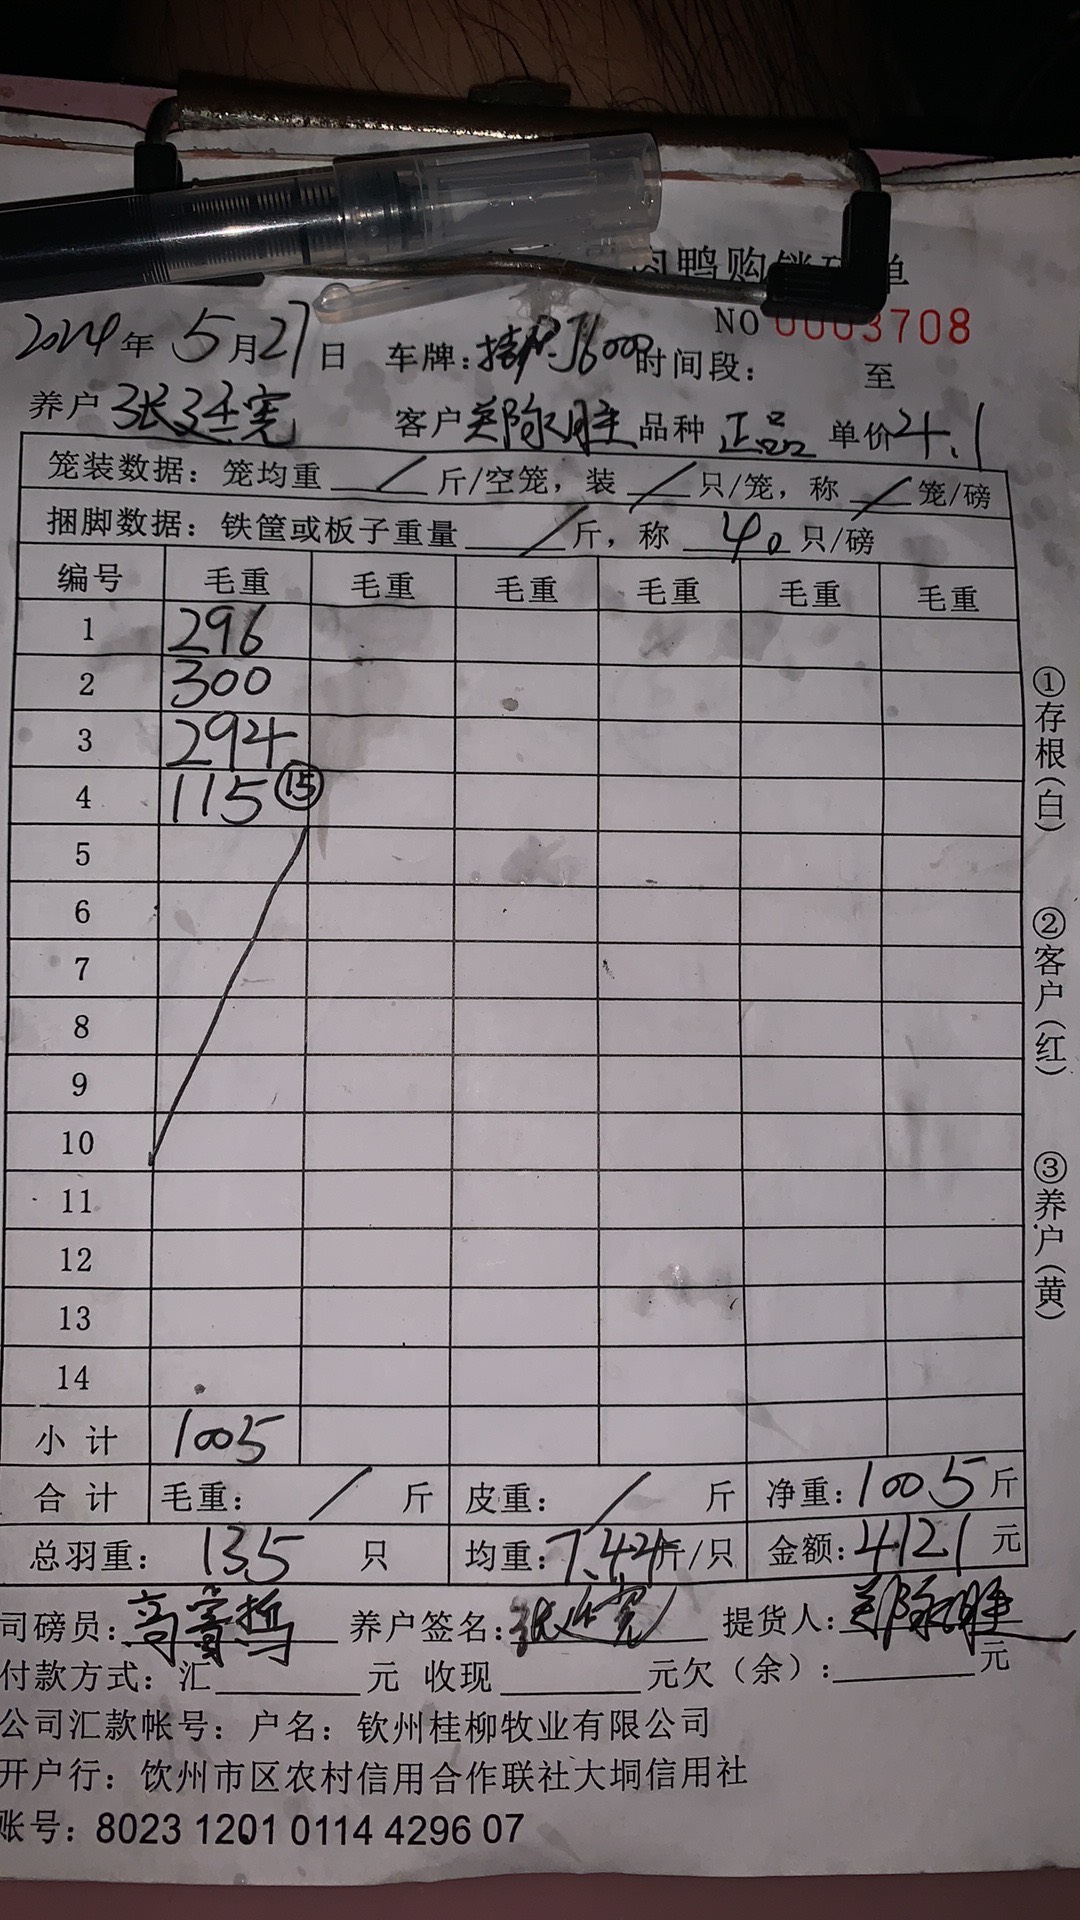 肉鸭购销码单
NO 0003708
2024年 5月21日 车牌: J6000 时间段: 至
养户 张廷宪 客户 郑际胜 品种 正品 单价 4.1
笼装数据: 笼均重 / 斤/空笼, 装 / 只/笼, 称 / 笼/磅
捆脚数据: 铁筐或板子重量 / 斤, 称 40 只/磅
编号 毛重 毛重 毛重 毛重 毛重 毛重
1 296
2 300
3 294
4 115 ⑮
5
6
7
8
9
10
11
12
13
14
小计 1005
合计 毛重: / 斤 皮重: / 斤 净重: 1005 斤
总羽重: 135 只 均重: 7.44 斤/只 金额: 4121 元
司磅员: 养户签名: 张廷宪 提货人: 郑际胜
付款方式: 汇 元 收现 元欠(余): 元
公司汇款帐号: 户名: 钦州桂柳牧业有限公司
开户行: 钦州市区农村信用合作联社大垌信用社
账号: 8023 1201 0114 4296 07
①存根(白)
②客户(红)
③养户(黄)